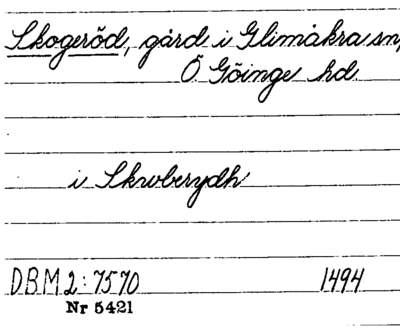 Skogeröd, gård i Glimåkra sn,
Ö. Göinge hd.
i Skwberydh
DBM 2:7570 1494
Nr 5421